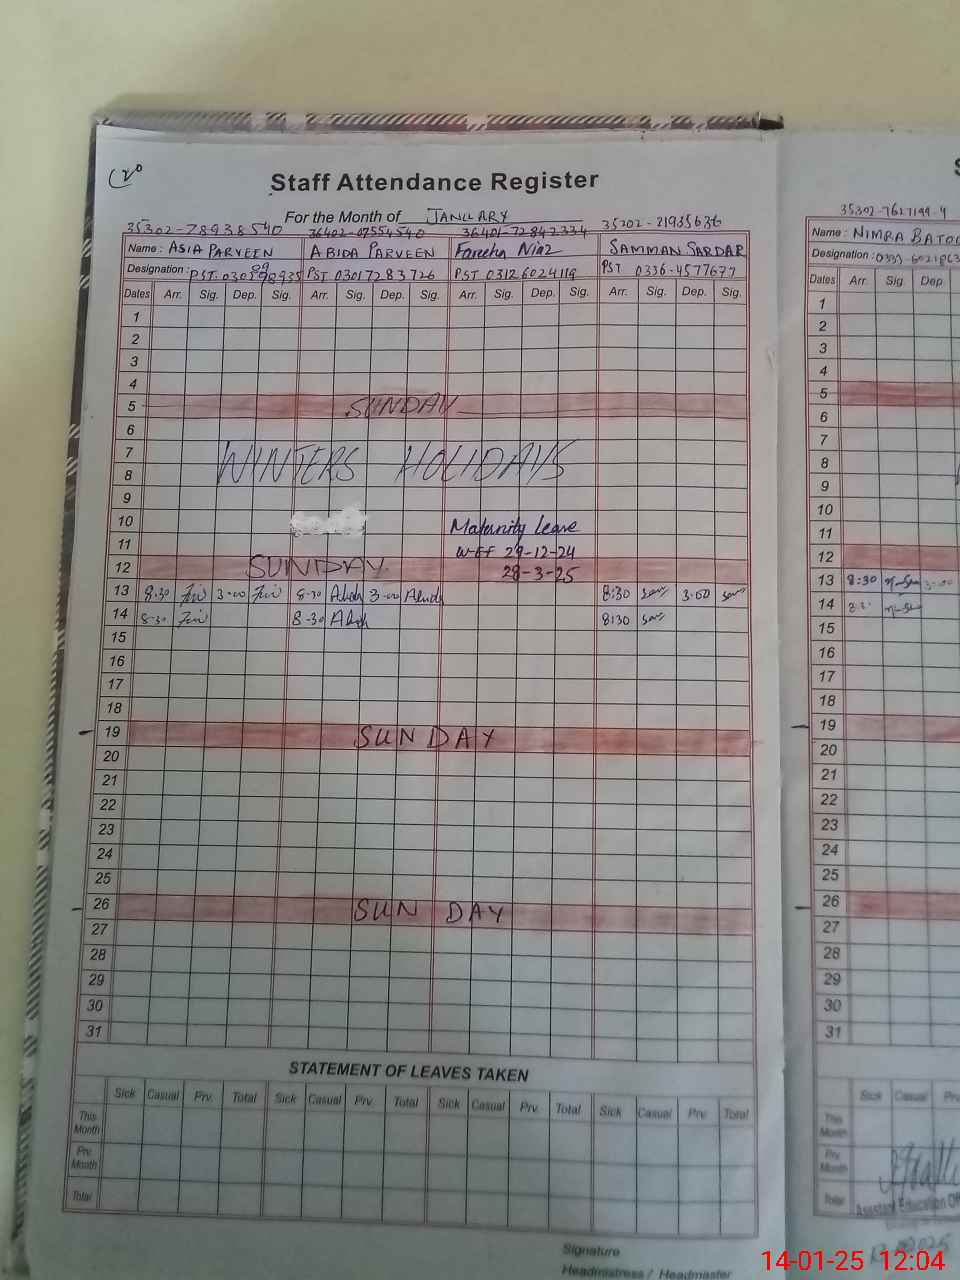 Staff Attendance Register
For the Month of JANUARY
35302-78938540 36402-07554540 36401-72842334 35202-21935636
Name : ASIA PARVEEN ABIDA PARVEEN Fareeha Niaz SAMMAN SARDAR
Designation : PST PST 03017283726 PST 03126024119 PST 0336-4577677
Dates Arr. Sig. Dep. Sig. Arr. Sig. Dep. Sig. Arr. Sig. Dep. Sig. Arr. Sig. Dep. Sig.
1
2
3
4
5 SUNDAY
6
7 WINTERS HOLIDAYS
8
9
10 Maternity Leave
11 W-E-F 29-12-24
12 SUNDAY 28-3-25
13 8:30 3-00 8-30 Abida 3-00 Abida 8:30 3.00
14 8-30 8-30 Abida 8:30
15
16
17
18
19 SUNDAY
20
21
22
23
24
25
26 SUN DAY
27
28
29
30
31
STATEMENT OF LEAVES TAKEN
Sick Casual Prv. Total Sick Casual Prv. Total Sick Casual Prv. Total Sick Casual Prv. Total
This Month
Prv. Month
Total
Signature
Headmistress / Headmaster
35302-7627199-4
Name : NIMRA
Designation :
Dates Arr. Sig. Dep.
1
2
3
4
5
6
7
8
9
10
11
12
13 8:30 3:00
14
15
16
17
18
19
20
21
22
23
24
25
26
27
28
29
30
31
Sick Casual
This Month
Prv. Month
Total
Assistant Education
14-01-25 12:04